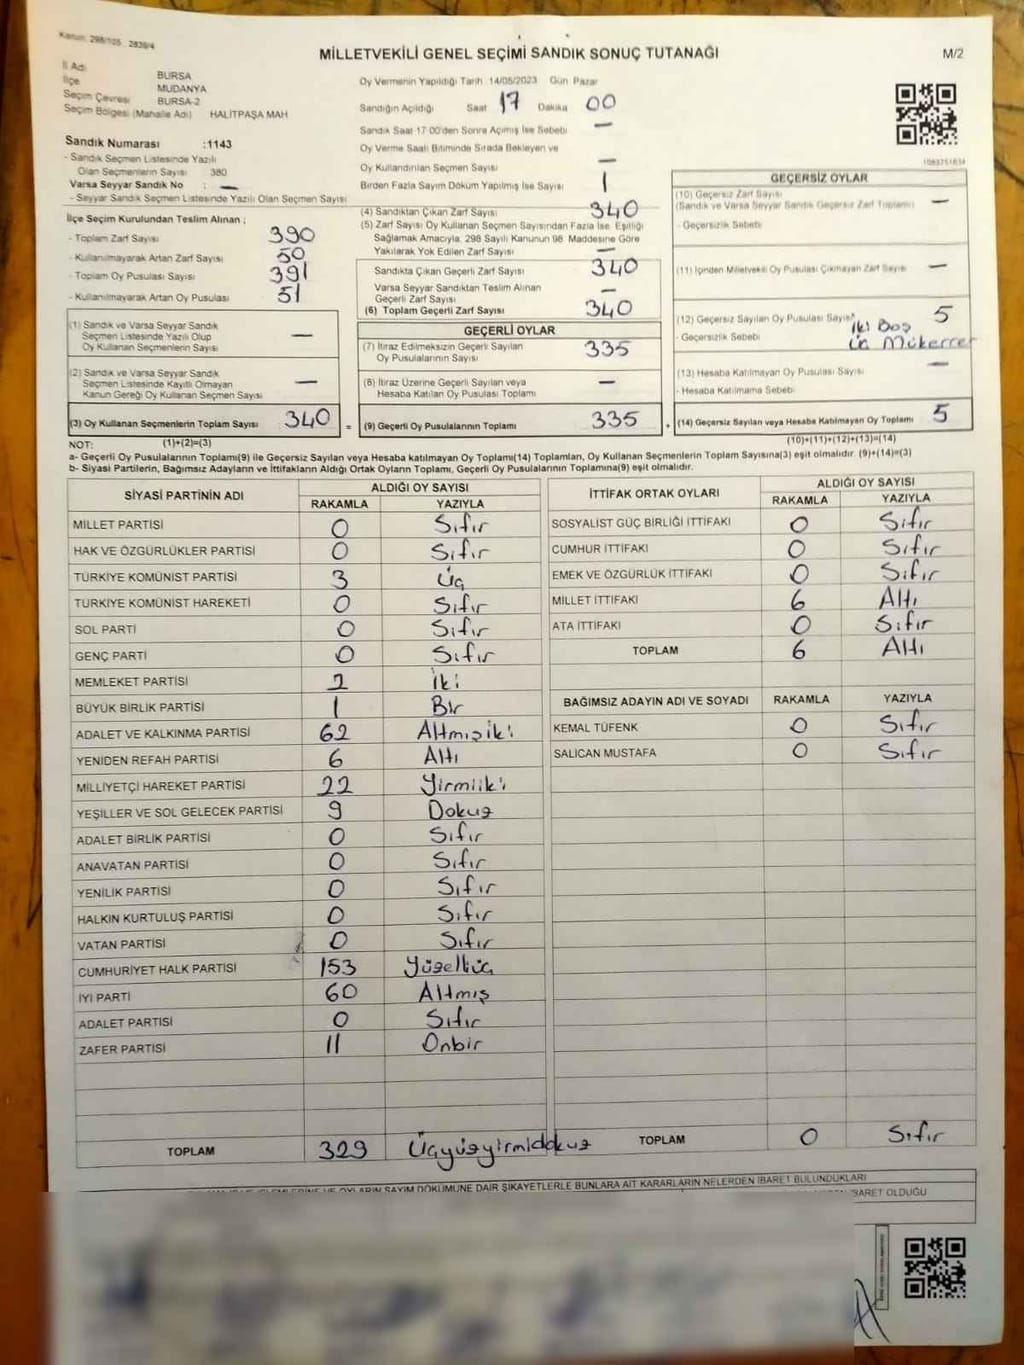 Kanun: 298/105 2839/4
MİLLETVEKİLİ GENEL SEÇİMİ SANDIK SONUÇ TUTANAĞI
M/2
İl Adı BURSA
İlçe MUDANYA
Seçim Çevresi BURSA-2
Seçim Bölgesi (Mahalle Adı) HALİTPAŞA MAH
Sandık Numarası :1143
- Sandık Seçmen Listesinde Yazılı
Olan Seçmenlerin Sayısı 380
Varsa Seyyar Sandık No : —
- Seyyar Sandık Seçmen Listesinde Yazılı Olan Seçmen Sayısı
Oy Vermenin Yapıldığı Tarih 14/05/2023 Gün Pazar
Sandığın Açıldığı Saat 17 Dakika 00
Sandık Saat 17:00'den Sonra Açılmış İse Sebebi —
Oy Verme Saati Bitiminde Sırada Bekleyen ve
Oy Kullandırılan Seçmen Sayısı —
Birden Fazla Sayım Döküm Yapılmış İse Sayısı 1
İlçe Seçim Kurulundan Teslim Alınan ;
- Toplam Zarf Sayısı 390
- Kullanılmayarak Artan Zarf Sayısı 50
- Toplam Oy Pusulası Sayısı 391
- Kullanılmayarak Artan Oy Pusulası 51
(1) Sandık ve Varsa Seyyar Sandık
Seçmen Listesinde Yazılı Olup
Oy Kullanan Seçmenlerin Sayısı —
(2) Sandık ve Varsa Seyyar Sandık
Seçmen Listesinde Kayıtlı Olmayan
Kanun Gereği Oy Kullanan Seçmen Sayısı —
(3) Oy Kullanan Seçmenlerin Toplam Sayısı 340
(4) Sandıktan Çıkan Zarf Sayısı 340
(5) Zarf Sayısı Oy Kullanan Seçmen Sayısından Fazla İse, Eşitliği
Sağlamak Amacıyla, 298 Sayılı Kanunun 98. Maddesine Göre
Yakılarak Yok Edilen Zarf Sayısı —
Sandıkta Çıkan Geçerli Zarf Sayısı 340
Varsa Seyyar Sandıktan Teslim Alınan
Geçerli Zarf Sayısı —
(6) Toplam Geçerli Zarf Sayısı 340
GEÇERLİ OYLAR
(7) İtiraz Edilmeksizin Geçerli Sayılan
Oy Pusulalarının Sayısı 335
(8) İtiraz Üzerine Geçerli Sayılan veya
Hesaba Katılan Oy Pusulası Toplamı —
= (9) Geçerli Oy Pusulalarının Toplamı 335
1083751834
GEÇERSİZ OYLAR
(10) Geçersiz Zarf Sayısı
(Sandık ve Varsa Seyyar Sandık Geçersiz Zarf Toplamı) —
- Geçersizlik Sebebi
(11) İçinden Milletvekili Oy Pusulası Çıkmayan Zarf Sayısı —
(12) Geçersiz Sayılan Oy Pusulası Sayısı 5
- Geçersizlik Sebebi İki Boş
üç Mükerrer
(13) Hesaba Katılmayan Oy Pusulası Sayısı —
- Hesaba Katılmama Sebebi
+ (14) Geçersiz Sayılan veya Hesaba Katılmayan Oy Toplamı 5
NOT: (1)+(2)=(3)
(10)+(11)+(12)+(13)=(14)
a- Geçerli Oy Pusulasının Toplamı(9) ile Geçersiz Sayılan veya Hesaba Katılmayan Oy Toplamı(14) Toplamları, Oy Kullanan Seçmenlerin Toplam Sayısına(3) eşit olmalıdır. (9)+(14)=(3)
b- Siyasi Partilerin, Bağımsız Adayların ve İttifakların Aldığı Ortak Oyların Toplamı, Geçerli Oy Pusulalarının Toplamına(9) eşit olmalıdır.
SİYASİ PARTİNİN ADI ALDIĞI OY SAYISI
RAKAMLA YAZIYLA
MİLLET PARTİSİ 0 Sıfır
HAK VE ÖZGÜRLÜKLER PARTİSİ 0 Sıfır
TÜRKİYE KOMÜNİST PARTİSİ 3 Üç
TÜRKİYE KOMÜNİST HAREKETİ 0 Sıfır
SOL PARTİ 0 Sıfır
GENÇ PARTİ 0 Sıfır
MEMLEKET PARTİSİ 2 İki
BÜYÜK BİRLİK PARTİSİ 1 Bir
ADALET VE KALKINMA PARTİSİ 62 Altmışiki
YENİDEN REFAH PARTİSİ 6 Altı
MİLLİYETÇİ HAREKET PARTİSİ 22 Yirmiiki
YEŞİLLER VE SOL GELECEK PARTİSİ 9 Dokuz
ADALET BİRLİK PARTİSİ 0 Sıfır
ANAVATAN PARTİSİ 0 Sıfır
YENİLİK PARTİSİ 0 Sıfır
HALKIN KURTULUŞ PARTİSİ 0 Sıfır
VATAN PARTİSİ 0 Sıfır
CUMHURİYET HALK PARTİSİ 153 Yüzelliüç
İYİ PARTİ 60 Altmış
ADALET PARTİSİ 0 Sıfır
ZAFER PARTİSİ 11 Onbir
TOPLAM 329 Üçyüzyirmidokuz
İTTİFAK ORTAK OYLARI ALDIĞI OY SAYISI
RAKAMLA YAZIYLA
SOSYALİST GÜÇ BİRLİĞİ İTTİFAKI 0 Sıfır
CUMHUR İTTİFAKI 0 Sıfır
EMEK VE ÖZGÜRLÜK İTTİFAKI 0 Sıfır
MİLLET İTTİFAKI 6 Altı
ATA İTTİFAKI 0 Sıfır
TOPLAM 6 Altı
BAĞIMSIZ ADAYIN ADI VE SOYADI RAKAMLA YAZIYLA
KEMAL TÜFENK 0 Sıfır
SALİCAN MUSTAFA 0 Sıfır
TOPLAM 0 Sıfır
OYLARIN SAYIM DÖKÜMÜNE DAİR ŞİKAYETLERLE BUNLARA AİT KARARLARIN NELERDEN İBARET BULUNDUKLARI
İBARET OLDUĞU